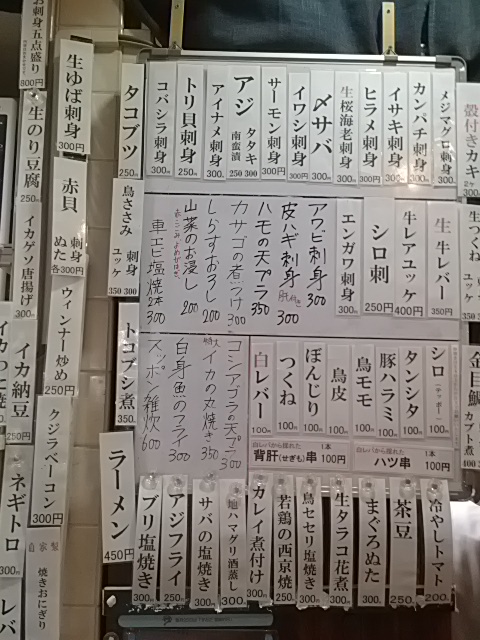 メジマグロ刺身 300円
カンパチ刺身 300円
イサキ刺身 300円
ヒラメ刺身 300円
生桜海老刺身 300円
〆サバ 300円
イワシ刺身 300円
サーモン刺身 300円
アジ タタキ 南蛮漬 250 300
アイナメ刺身 300円
トリ貝刺身 250円
コバシラ刺身 300円
牛レバー 生 350円
牛レアユッケ 400円
シロ刺 250円
エンガワ刺身 300円
アワビ刺身 300
皮ハギ刺身 300
ハモの天プラ 350
カサゴの煮つけ 300
しらすおろし 200
山菜のお浸し 200
車エビ塩焼 2本 300
シロ (テッポー) 100円
タンシタ 100円
豚ハラミ 100円
鳥モモ 100円
鳥皮 100円
ぼんじり 100円
つくね 100円
白レバー 100円
白レバから採れた ハツ串 1本 100円
白レバから採れた 背肝(せぎも)串 1本 100円
コシアゴラの天プラ 300
イカの丸焼き 350
白身魚のフライ 300
スッポン雑炊 600
冷やしトマト 200円
茶豆 250円
まぐろぬた 300円
生タラコ花煮 300円
鳥セセリ塩焼き 300円
若鶏の西京焼 250円
カレイ煮付け 300円
地ハマグリ酒蒸し 300円
サバの塩焼き 300円
アジフライ 250円
ブリ塩焼き 300円
殻付きカキ 2ケ 300円
生つくね ユッケ
金目鯛 カブト煮
タコブツ 250円
鳥ささみ ユッケ 350 300
トコブシ煮 350円
ラーメン 450円
生ゆば刺身 300円
赤貝 刺身 ぬた 各300円
ウィンナー炒め 250円
クジラベーコン 300円
自家製 焼きおにぎり
お刺身五点盛り 800円
生のり豆腐 250円
イカゲソ唐揚げ 300円
イカ納豆 250円
ネギトロ 300円
レバ